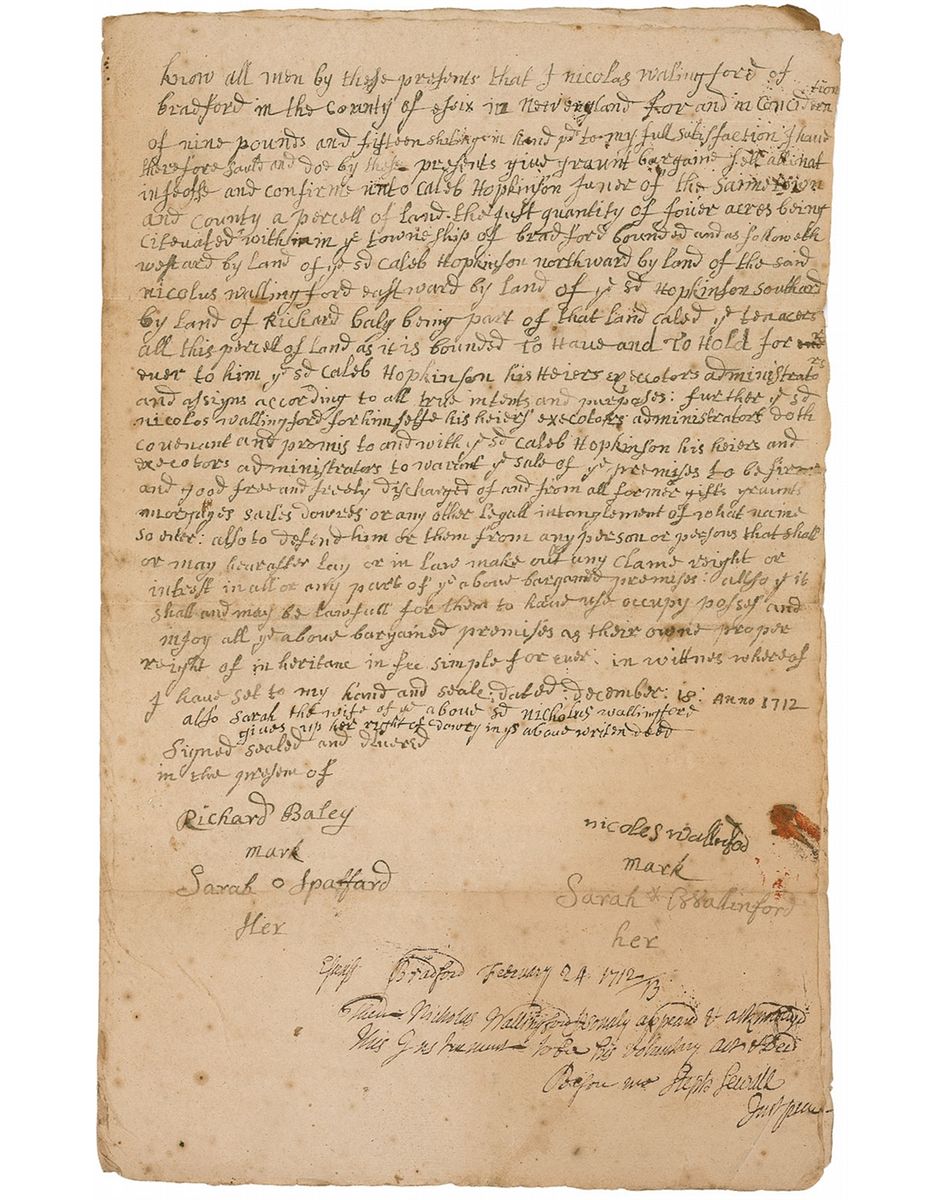 know all men by these presents that I nicolas walingford of
bradford in the County of esix in Newengland for and in Concidera
tion
of nine pounds and fifteen shilings in hand pd to my full satisfaction I have
therefore sauld and doe by these presents give graunt bargaine sell alinat
infeoffe and confirme unto Caleb Hopkinson Juner of the same town
and County a percell of land the just quantity of fouer acres being
Citevated within ye towneship of bradford bounded and as followeth
westard by land of ye sd Caleb Hopkinson northward by land of the said
nicolus wallingford eastward by land of ye sd Hopkinson Southard
by land of Richard baly being part of that land caled ye tenacers
all this percell of land as it is bounded To Have and To Hold for
ever to him ye sd Caleb Hopkinson his Heiers execotors administrato
rs
and assigns according to all true intents and purposes: further ye sd
nicolos wallingford for himselfe his heiers execotors administrators doth
covenant and promis to and with ye sd Caleb Hopkinson his heiers and
execotors administrators to warint ye sale of ye premises to be firme
and good free and freely discharged of and from all former gifts graunts
morgages sailes dowres or any other legall intanglement of what name
so ever: also to defend him or them from any person or persons that shall
or may hearafter lay or in law make out any clame reight or
intrest in all or any part of ye above bargained premises: allso yt it
shall and may be lawfull for them to have use occupy posses and
injoy all ye above bargained premises as their owne proper
reight of in heritanc in fee simple for ever: in wittnes whereof
I have set to my hand and seale, dated: december: 18: Anno 1712
also Sarah the wife of ye above sd Nicholus wallingford
gives up her right of dowry in ys above writen deed
Signed sealed and divered
in the presem of
Richard Baley
mark
Sarah o Spaffard
Her
nicoles wallinford
mark
Sarah x Wallinford
her
Essex Bradford February 24 1712/13
Then Nicholus Wallingford psonaly apeard & acknowledgd
this Instrument to be his voluntary act & deed
Before me Steph Sewall
Just peace